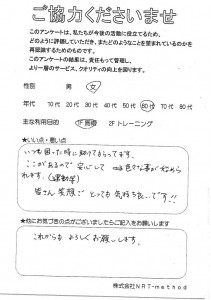 ご協力くださいませ
このアンケートは、私たちが今後の活動に役立てるため、
どのように評価していただき、またどのようなことを望まれているのかを
再認識するためのものです。
このアンケートの結果は、責任もって管理し、
より一層のサービス、クオリティの向上を図ります。
性別 男 女
年代 10代 20代 30代 40代 50代 60代 70代 80代
主な利用目的 1F 施術 2F トレーニング
★いい点・悪い点
いつも困った時に助けてもらってます。
ここがあるので安心して
色々な事が始められます。(運動等)
皆さん笑顔で とっても気持ち良いです!!
★他にお気づきの点がございましたらご記入をお願いします
これからも よろしくお願いします。
株式会社NAT-method